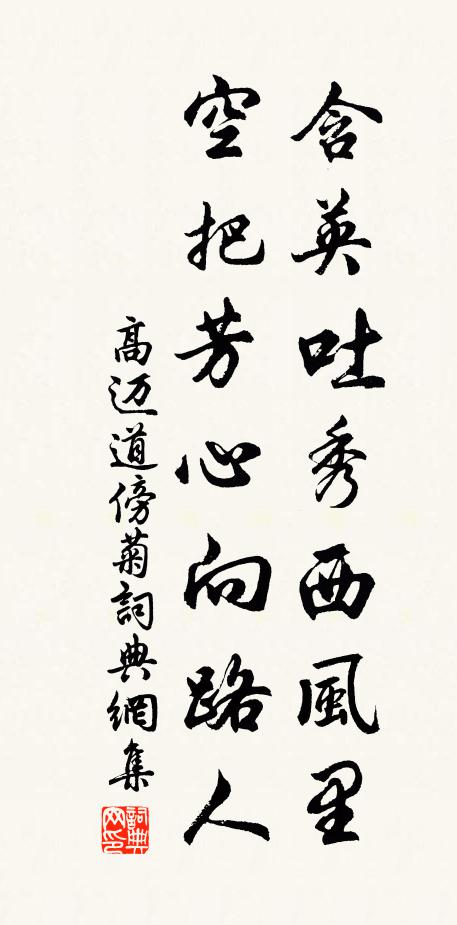 含英吐秀西風里
空把芳心向路人
高迈道傍菊詞典網集
詞典网印